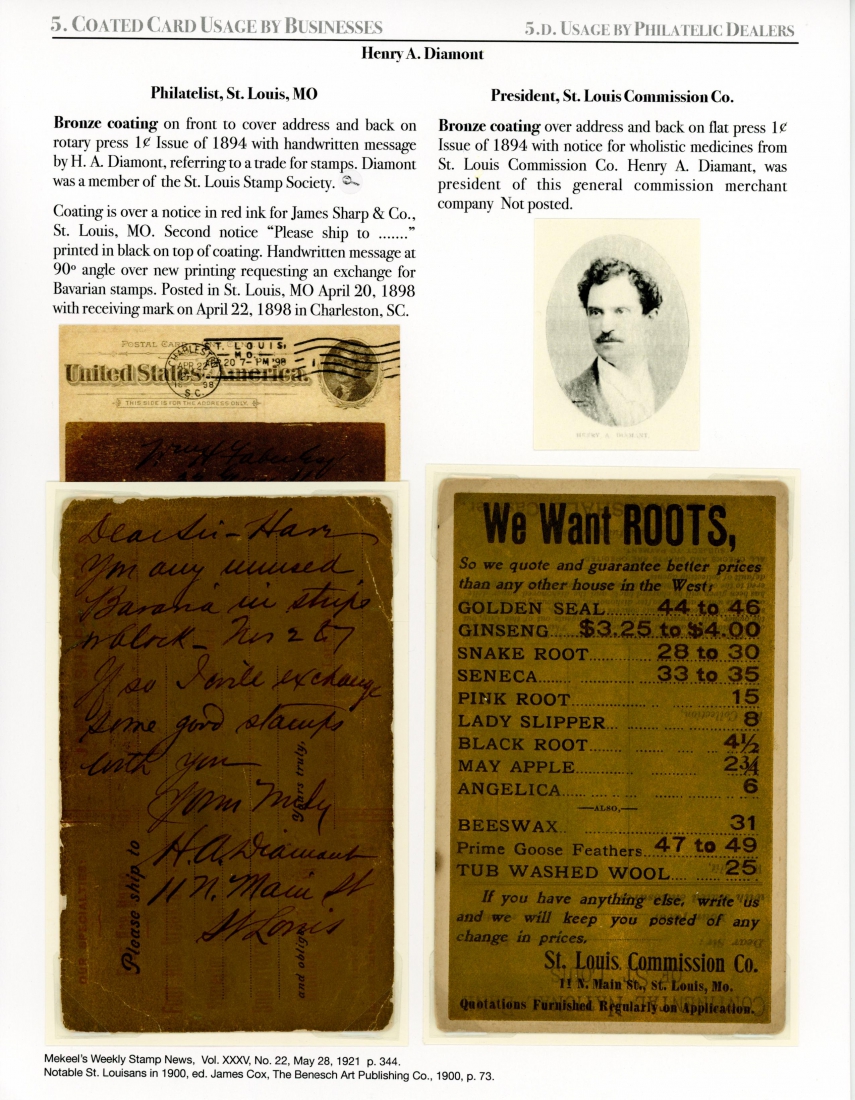 5. COATED CARD USAGE BY BUSINESSES
5.D. USAGE BY PHILATELIC DEALERS
Henry A. Diamont
Philatelist, St. Louis, MO
Bronze coating on front to cover address and back on
rotary press 1¢ Issue of 1894 with handwritten message
by H. A. Diamont, referring to a trade for stamps. Diamont
was a member of the St. Louis Stamp Society.
Coating is over a notice in red ink for James Sharp & Co.,
St. Louis, MO. Second notice “Please ship to .......”
printed in black on top of coating. Handwritten message at
90º angle over new printing requesting an exchange for
Bavarian stamps. Posted in St. Louis, MO April 20, 1898
with receiving mark on April 22, 1898 in Charleston, SC.
POSTAL CARD
ST. LOUIS,
MO.
20 7-PM '98
CHARLESTON
APR 22
98
S.C.
United States America.
THIS SIDE IS FOR THE ADDRESS ONLY.
Dear Sir - Have
You any unused
Bavaria in strips
or block - Nos 2 & 7
If so I will exchange
some good stamps
with you
Yours truly
H.A. Diamont
11 N. Main St
St Louis
Please ship to
Yours truly,
and oblige
OUR SPECIALTIES
President, St. Louis Commission Co.
Bronze coating over address and back on flat press 1¢
Issue of 1894 with notice for wholistic medicines from
St. Louis Commission Co. Henry A. Diamant, was
president of this general commission merchant
company Not posted.
HENRY A. DIAMANT.
We Want ROOTS,
So we quote and guarantee better prices
than any other house in the West:
GOLDEN SEAL 44 to 46
GINSENG $3.25 to $4.00
SNAKE ROOT 28 to 30
SENECA 33 to 35
PINK ROOT 15
LADY SLIPPER 8
BLACK ROOT 4½
MAY APPLE 2¾
ANGELICA 6
—ALSO,—
BEESWAX 31
Prime Goose Feathers 47 to 49
TUB WASHED WOOL 25
If you have anything else, write us
and we will keep you posted of any
change in prices.
St. Louis Commission Co.
11 N. Main St., St. Louis, Mo.
Quotations Furnished Regularly on Application.
Mekeel's Weekly Stamp News, Vol. XXXV, No. 22, May 28, 1921 p. 344.
Notable St. Louisans in 1900, ed. James Cox, The Benesch Art Publishing Co., 1900, p. 73.